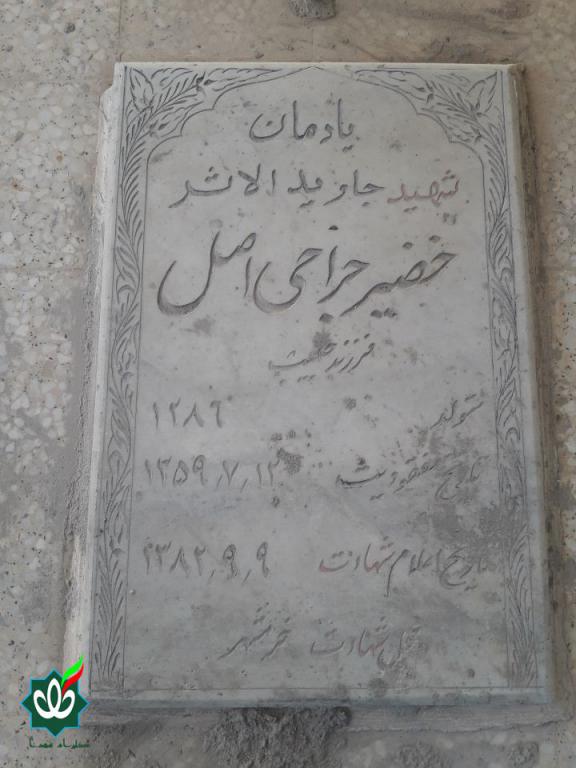 یادمان
شهید جاوید الاثر
خضیر جراحی اصل
فرزند حبیب
متولد ۱۲۸۶
تاریخ مفقودیت ۱۳۵۹٫۷٫۱۲
تاریخ اعلام شهادت ۱۳۸۲٫۹٫۹
محل شهادت خرمشهر